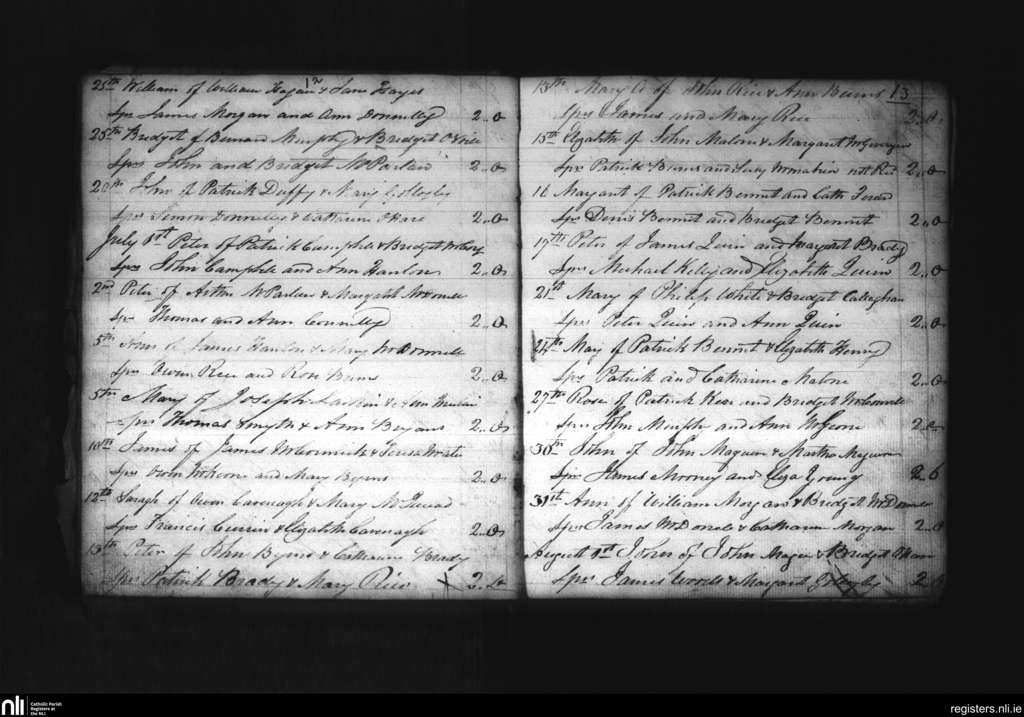 12
25th William of William Hagan & Jane Hayes
Sps James Morgan and Ann Donnelly 2..0
25th Bridget of Bernard Murphy & Bridget
Sps John and Bridget McParlan 2..0
John of Patrick Duffy & Mary
Sps Simon Donnelly & Catherine O'Hare 2..0
July 1st Peter of Patrick Campbell & Bridget
Sps John Campbell and Ann Hanlon 2..0
2nd Peter of Arthur McParlan & Margaret
Sps Thomas and Ann Connolly 2..0
5th Ann of James Hanlon & Mary McDonnell
Sps Owen Rice and Rose Burns 2..0
5th Mary of Joseph
Sps Thomas Smyth & Ann Bryans 2..0
10th James of James McCormick & Teresa
Sps Owen and Mary Byrns 2..0
12th Saragh of Owen Cavenagh & Mary
Sps Francis Currin & Elizabeth Cavenagh 2..0
13th Peter of John Byrns & Catharine Brady
Sps Patrick Brady & Mary Rice 2
13
13th Mary of John Rice & Ann Burns
Sps James and Mary Rice 2..0
15th Elizabeth of John Malone & Margaret
Sps Patrick Burns and 2..0
16 Margaret of Patrick Bennet and Cath
Sps Denis Bennet and Bridget Bennet 2..0
19th Peter of James Quin and Margaret Brady
Sps Michael Kelly and Elizabeth Quinn 2..0
21st Mary of Philip White & Bridget Callaghan
Sps Peter Quin and Ann Quin 2..0
24th Mary of Patrick Bennet & Elizabeth Henry
Sps Patrick and Catharine Malone 2..0
27th Rose of Patrick Rice and Bridget
Sps John Murphy and Ann McGeone 2..0
30th John of John Maguire & Martha
Sps James Mooney and Eliza Young 2..6
31st Ann of William Morgan & Bridget
Sps James & Catharine Morgan 2..0
August 1st John of John & Bridget
Sps James Woods & Margaret 2
nli
Catholic Parish
Registers at
the NLI
registers.nli.ie